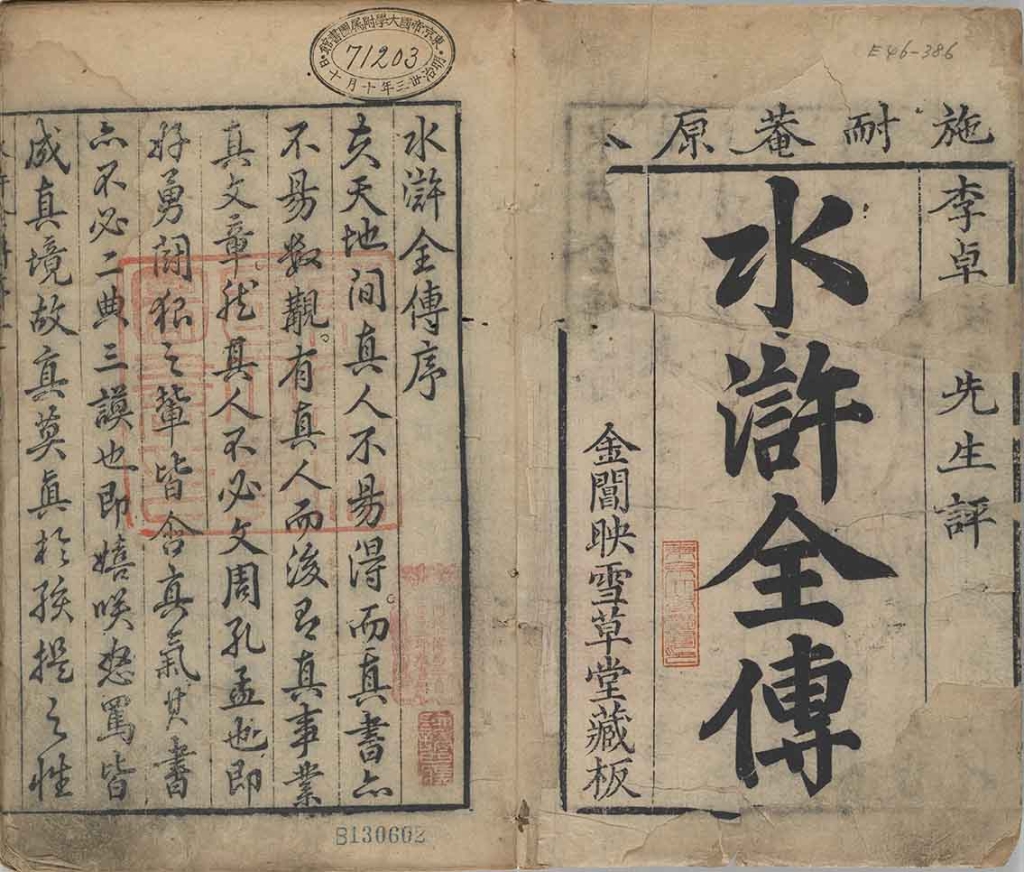 E46-386
施耐菴原
李卓 先生評
水滸全傳
金閶映雪草堂藏板
東京帝國大學附属圖書館
71203
明治卅三年十月十日
水滸全傳序
夫天地间真人不易得而真書亦
不易数覯。有真人而後有真事業
真文章。然真人不必文周孔孟也即
好勇鬪狠之輩皆含真氣其書
亦不必二典三謨也即嬉咲怒罵皆
成真境故真莫真於孩提之性
B130602